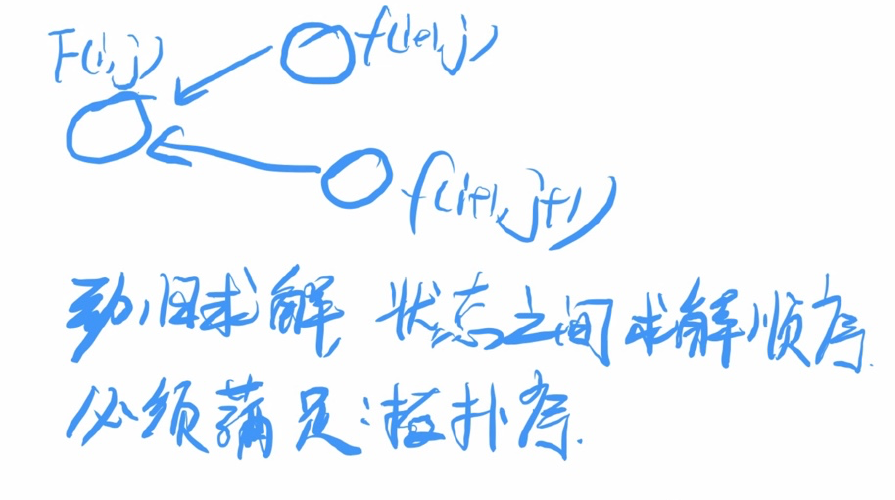 F(i,j)
f(i+1,j)
f(i+1,j+1)
动归求解,状态之间求解顺序
必须满足:拓扑序.